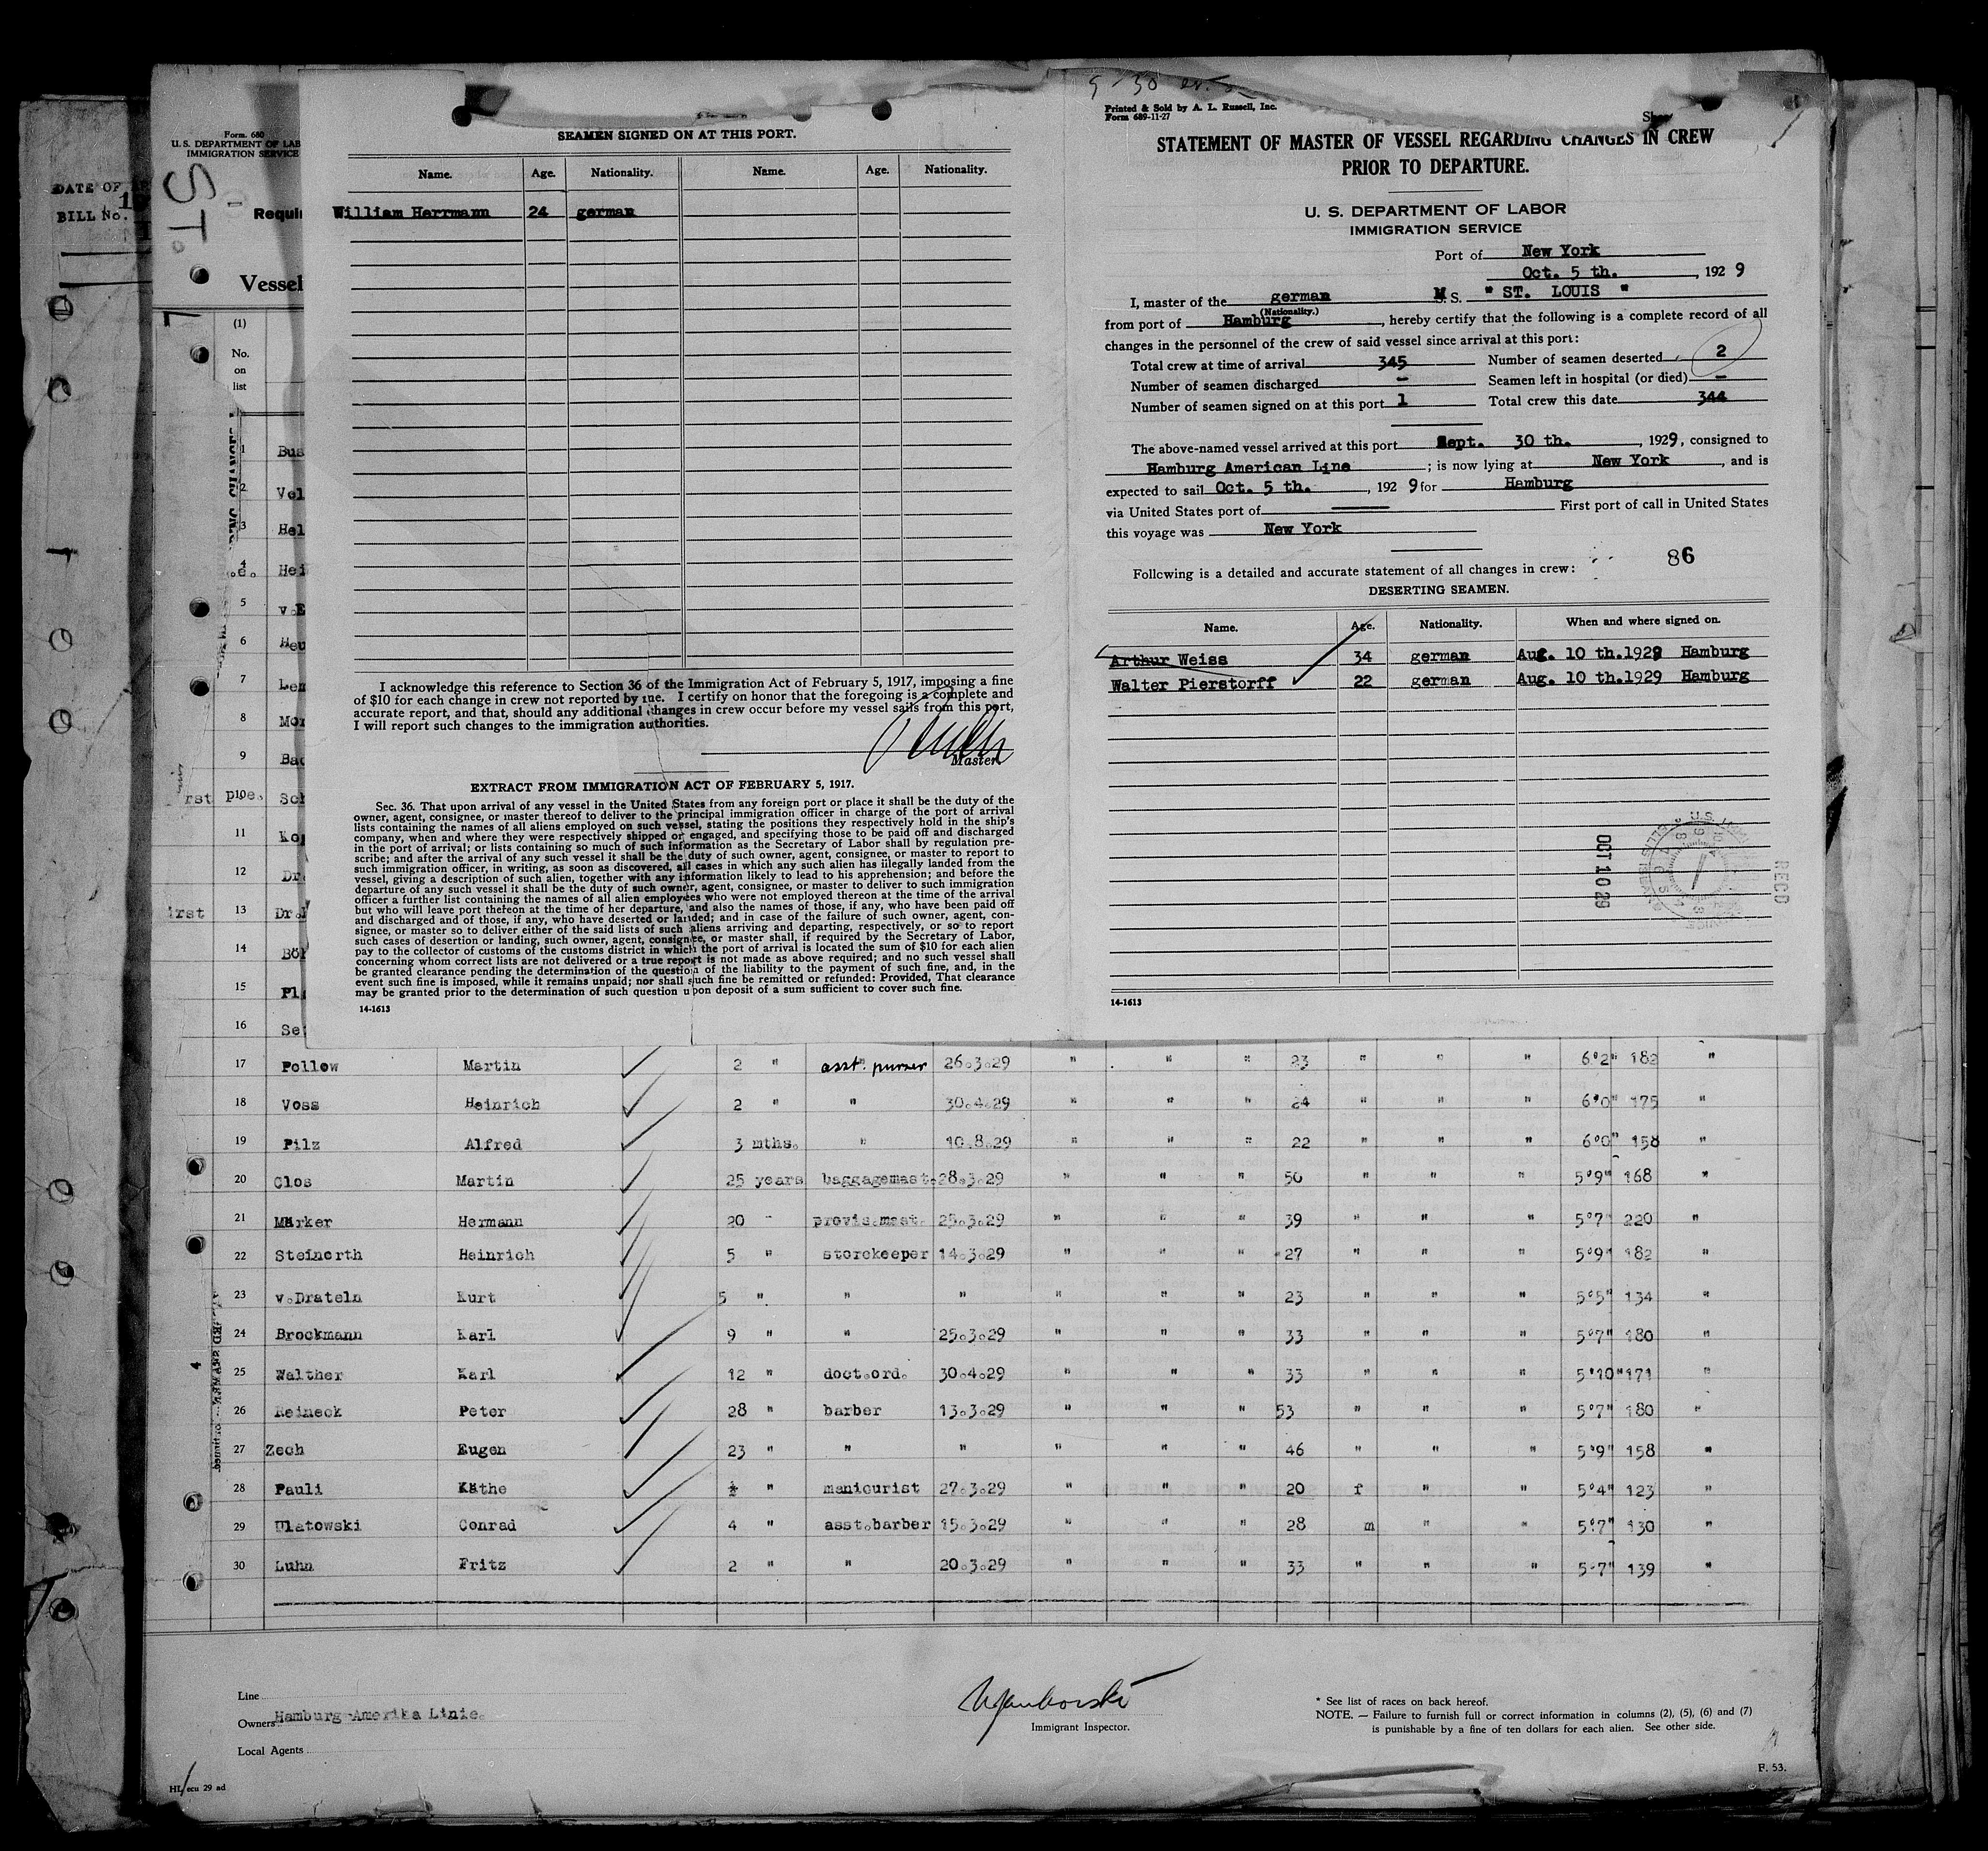 DATE OF
BILL No.
Form. 680
U. S. DEPARTMENT OF LAB
IMMIGRATION SERVICE
ST.
Requi
Vessel
(1)
No.
on
list
1 Bus
2 Vol
3 Hel
4 Hei
5 v.E
6 Heu
7 Len
8 Mor
9 Bac
10 Sch
11 Kop
12 Dr.
13 Dr.
14 Böh
15 Pl
16 Se
SEAMEN SIGNED ON AT THIS PORT.
Name. Age. Nationality. Name. Age. Nationality.
William Herrmann 24 german
I acknowledge this reference to Section 36 of the Immigration Act of February 5, 1917, imposing a fine
of $10 for each change in crew not reported by me. I certify on honor that the foregoing is a complete and
accurate report, and that, should any additional changes in crew occur before my vessel sails from this port,
I will report such changes to the immigration authorities.
Master.
EXTRACT FROM IMMIGRATION ACT OF FEBRUARY 5, 1917.
Sec. 36. That upon arrival of any vessel in the United States from any foreign port or place it shall be the duty of the
owner, agent, consignee, or master thereof to deliver to the principal immigration officer in charge of the port of arrival
lists containing the names of all aliens employed on such vessel, stating the positions they respectively hold in the ship's
company, when and where they were respectively shipped or engaged, and specifying those to be paid off and discharged
in the port of arrival; or lists containing so much of such information as the Secretary of Labor shall by regulation pre-
scribe; and after the arrival of any such vessel it shall be the duty of such owner, agent, consignee, or master to report to
such immigration officer, in writing, as soon as discovered, all cases in which any such alien has illegally landed from the
vessel, giving a description of such alien, together with any information likely to lead to his apprehension; and before the
departure of any such vessel it shall be the duty of such owner, agent, consignee, or master to deliver to such immigration
officer a further list containing the names of all alien employees who were not employed thereon at the time of the arrival
but who will leave port thefeon at the time of her departure, and also the names of those, if any, who have been paid off
and discharged and of those, if any, who have deserted or landed; and in case of the failure of such owner, agent, con-
signee, or master so to deliver either of the said lists of such aliens arriving and departing, respectively, or so to report
such cases of desertion or landing, such owner, agent, consignee, or master shall, if required by the Secretary of Labor,
pay to the collector of customs of the customs district in which the port of arrival is located the sum of $10 for each alien
concerning whom correct lists are not delivered or a true report is not made as above required; and no such vessel shall
be granted clearance pending the determination of the question of the liability to the payment of such fine, and, in the
event such fine is imposed, while it remains unpaid; nor shall such fine be remitted or refunded: Provided, That clearance
may be granted prior to the determination of such question upon deposit of a sum sufficient to cover such fine.
14-1613
Printed & Sold by A. L. Russell, Inc.
Form 689-11-27
STATEMENT OF MASTER OF VESSEL REGARDING CHANGES IN CREW
PRIOR TO DEPARTURE.
U. S. DEPARTMENT OF LABOR
IMMIGRATION SERVICE
Port of New York
Oct. 5 th. , 192 9
I, master of the german M.S. " ST. LOUIS "
(Nationality.)
from port of Hamburg , hereby certify that the following is a complete record of all
changes in the personnel of the crew of said vessel since arrival at this port:
Total crew at time of arrival 345 Number of seamen deserted 2
Number of seamen discharged - Seamen left in hospital (or died) -
Number of seamen signed on at this port 1 Total crew this date 344
The above-named vessel arrived at this port Sept. 30 th. , 1929, consigned to
Hamburg American Line ; is now lying at New York , and is
expected to sail Oct. 5 th. , 192 9 for Hamburg
via United States port of First port of call in United States
this voyage was New York
86
Following is a detailed and accurate statement of all changes in crew:
DESERTING SEAMEN.
Name. Age. Nationality. When and where signed on.
Arthur Weiss 34 german Aug. 10 th.1929 Hamburg
Walter Pierstorff 22 german Aug. 10 th.1929 Hamburg
OCT 10 29
RECD
14-1613
17 Pollow Martin 2 " asst. purser 26.3.29 " " " 23 " " " 6'2" 182 "
18 Voss Heinrich 2 " " 30.4.29 " " " 24 " " " 6'0" 175 "
19 Pilz Alfred 3 mths. " 10.8.29 " " " 22 " " " 6'0" 158 "
20 Clos Martin 25 years baggagemast. 28.3.29 " " " 50 " " " 5'9" 168 "
21 Märker Hermann 20 " provis.mast. 25.3.29 " " " 39 " " " 5'7" 220 "
22 Steinorth Heinrich 5 " storekeeper 14.3.29 " " " 27 " " " 5'9" 182 "
23 v.Drateln Kurt 5 " " " " " " 23 " " " 5'5" 134 "
24 Brockmann Karl 9 " " 25.3.29 " " " 33 " " " 5'7" 180 "
25 Walther Karl 12 " doct.ord. 30.4.29 " " " 33 " " " 5'10" 171 "
26 Reineck Peter 28 " barber 13.3.29 " " " 53 " " " 5'7" 180 "
27 Zech Eugen 23 " " " " " " 46 " " " 5'9" 158 "
28 Pauli Käthe ½ " manicurist 27.3.29 " " " 20 f " " 5'4" 123 "
29 Ulatowski Conrad 4 " asst.barber 15.3.29 " " " 28 m " " 5'7" 130 "
30 Luhn Fritz 2 " " 20.3.29 " " " 33 " " " 5'7" 139 "
Line
Owners Hamburg-Amerika Linie.
Local Agents
Immigrant Inspector.
* See list of races on back hereof.
NOTE. — Failure to furnish full or correct information in columns (2), (5), (6) and (7)
is punishable by a fine of ten dollars for each alien. See other side.
HL ecu 29 ad
F. 53.